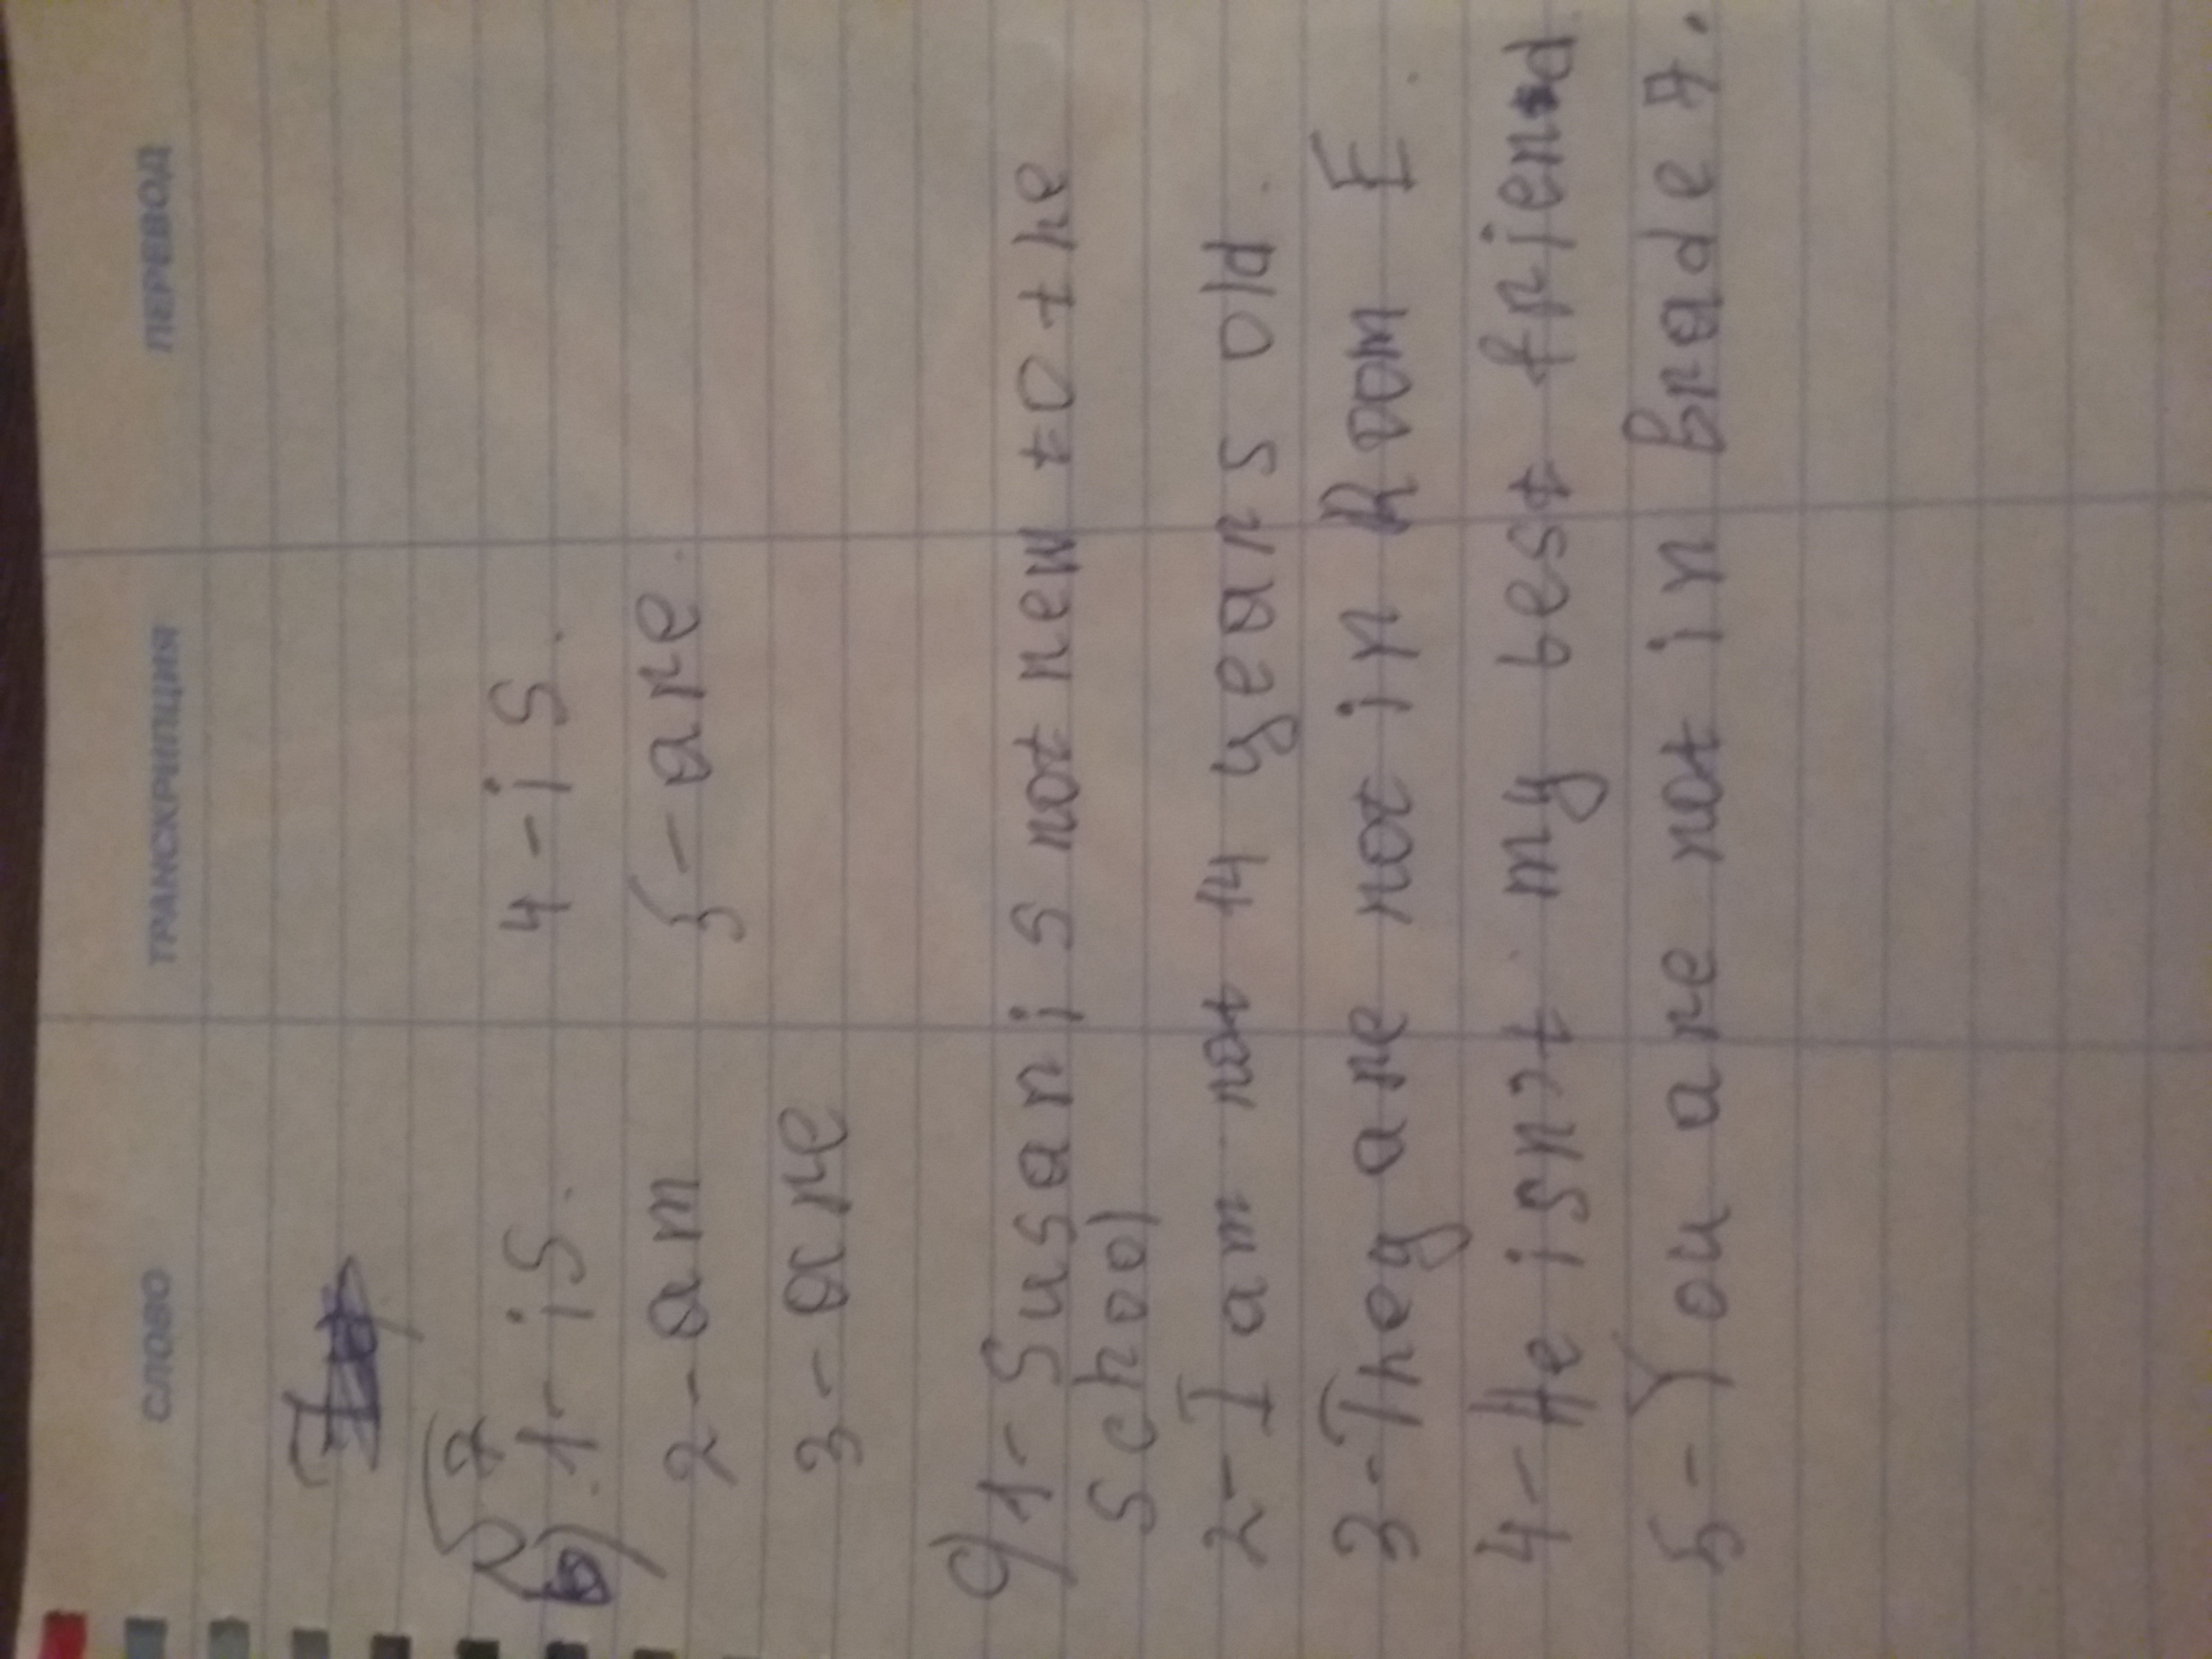 СЛОВО ТРАНСКРИПЦИЯ ПЕРЕВОД
b) 1 - is. 4 - is.
2 - am 5 - are.
3 - are
c) 1 - Susan is not new to the
school
2 - I am not 14 years old.
3 - They are not in Room E.
4 - He isn't my best friend
5 - You are not in grade 7.